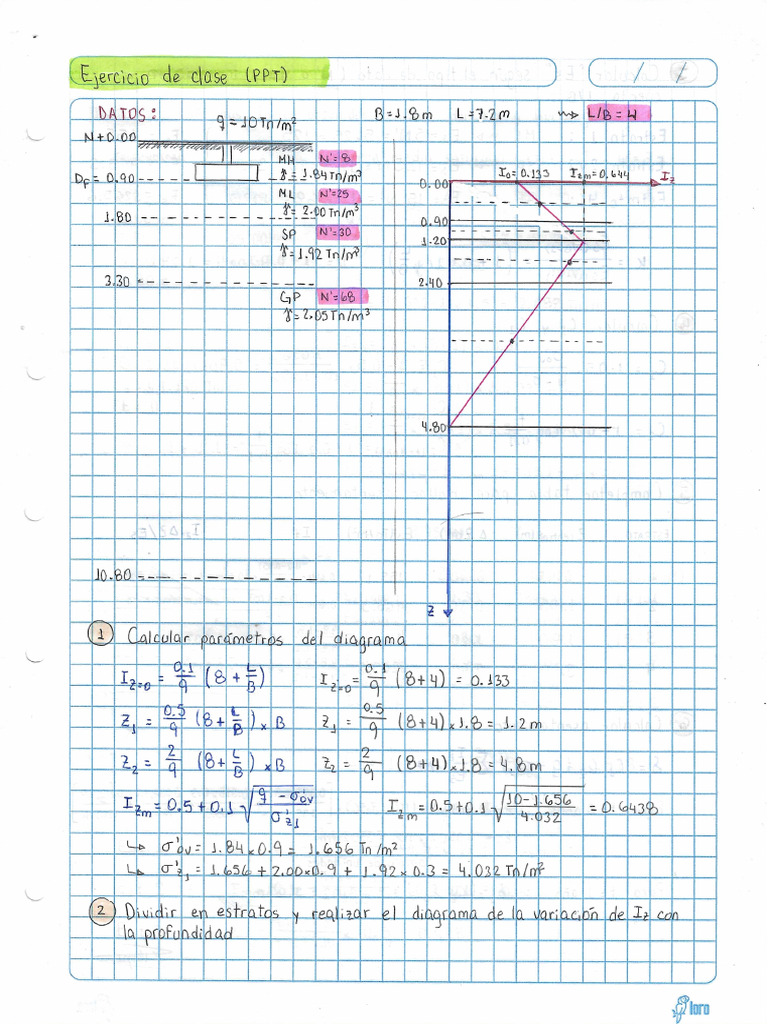 Ejercicio de clase (PPT)
/ /
DATOS:
q = 10 Tn/m²
B = 1.8 m L = 7.2 m ⇝ L/B = 4
N + 0.00
MH N' = 8
Df = 0.90
γ = 1.84 Tn/m³
ML N' = 25
γ = 2.00 Tn/m³
1.80
SP N' = 30
γ = 1.92 Tn/m³
3.30
GP N' = 68
γ = 2.05 Tn/m³
10.80
I₀ = 0.133 Izm = 0.644 Iz
0.00
0.90
1.20
2.40
4.80
z
1 Calcular parámetros del diagrama
Iz=0 = 0.1/9 (8 + L/B) Iz=0 = 0.1/9 (8+4) = 0.133
Z₁ = 0.5/9 (8 + L/B) × B Z₁ = 0.5/9 (8+4) × 1.8 = 1.2 m
Z₂ = 2/9 (8 + L/B) × B Z₂ = 2/9 (8+4) × 1.8 = 4.8 m
Izm = 0.5 + 0.1 √((q - σ'ov)/σ'z1) Izm = 0.5 + 0.1 √((10 - 1.656)/4.032) = 0.6438
↳ σ'ov = 1.84 × 0.9 = 1.656 Tn/m²
↳ σ'z1 = 1.656 + 2.00×0.9 + 1.92 × 0.3 = 4.032 Tn/m²
2 Dividir en estratos y realizar el diagrama de la variación de Iz con
la profundidad
loro